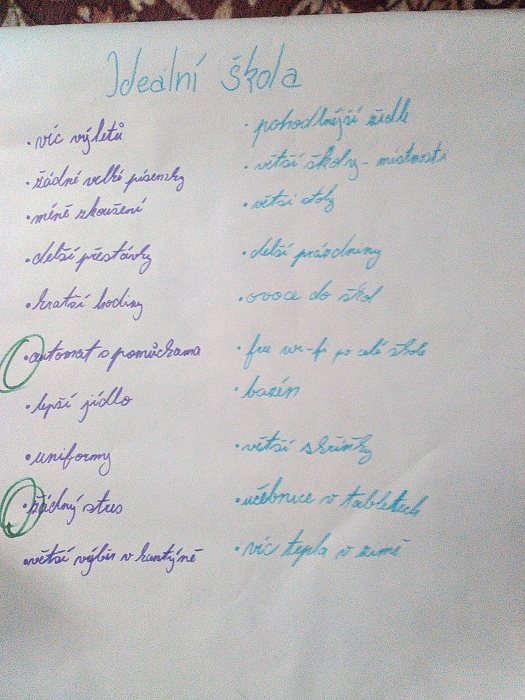 Ideální škola
• víc výletů
• žádné velké písemky
• méně zkoušení
• delší přestávky
• kratší hodiny
• automat s pomůckama
• lepší jídlo
• uniformy
• žádný stres
• větší výběr v kantýně
• pohodlnější židle
• větší školy - místnosti
• větší stoly
• delší prázdniny
• ovoce do škol
• free wi-fi po celé škole
• bazén
• větší skříňky
• učebnice v tabletech
• víc tepla v zimě